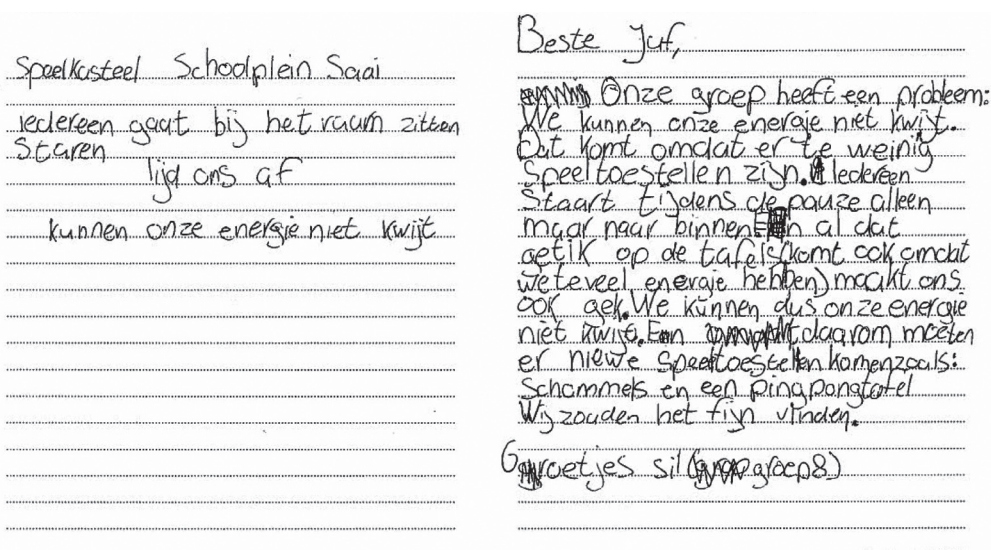 Speelkasteel Schoolplein Saai
iedereen gaat bij het raam zitten
staren
lijd ons af
kunnen onze energie niet kwijt
Beste Juf,
Onze groep heeft een probleem:
We kunnen onze energie niet kwijt.
Dat komt omdat er te weinig
Speeltoestellen zijn. Iedereen
Staart tijdens de pauze alleen
maar naar binnen En al dat
getik op de tafels(komt ook omdat
we teveel energie hebben) maakt ons
ook gek. We kunnen dus onze energie
niet kwijt. En daarom moeten
er niewe Speeltoestellen komen zoals:
Schommels en een pingpongtafel
Wij zouden het fijn vinden.
Groetjes sil (groep 8)